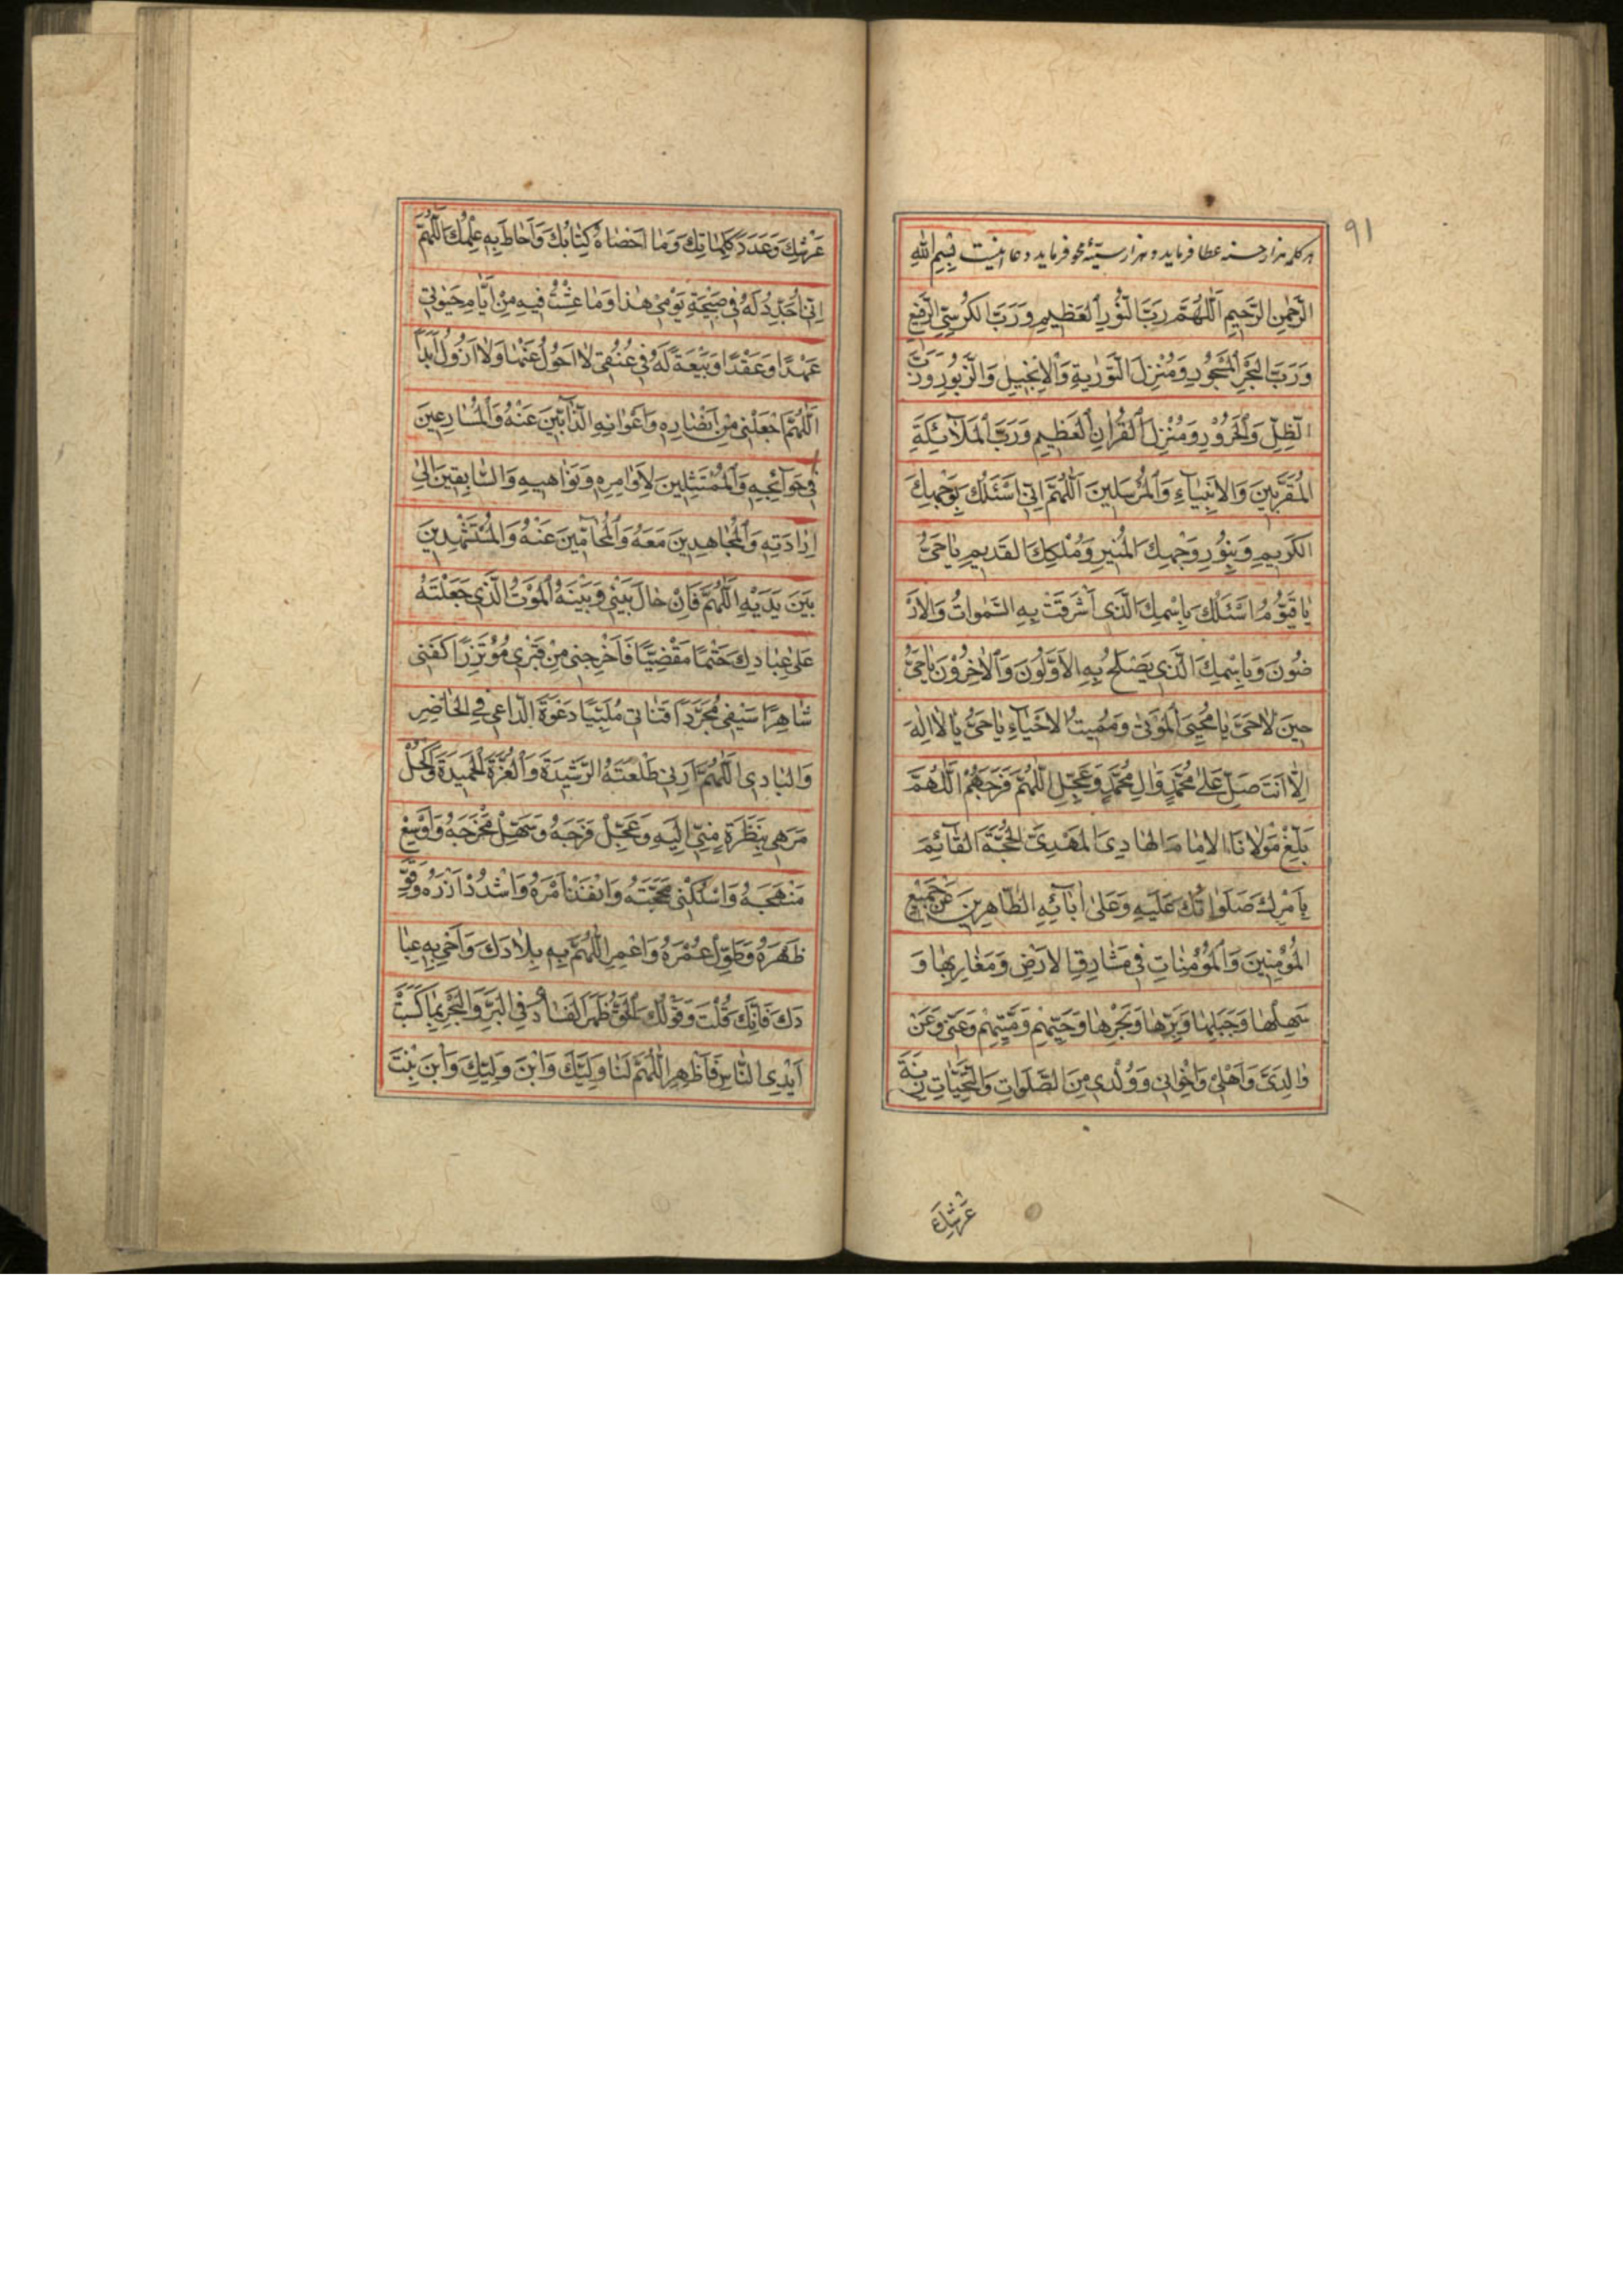 ٩١
هر کلمه هزار حسنه عطا فرماید و هزار سیّئه محو فرماید دعا اینست بِسْمِ اللهِ
الرَّحْمٰنِ الرَّحِیمِ اَللّٰهُمَّ رَبَّ النُّورِ الْعَظِیمِ وَرَبَّ الْکُرْسِیِّ الرَّفِیعِ
وَرَبَّ الْبَحْرِ الْمَسْجُورِ وَمُنْزِلَ التَّوْرٰیةِ وَالْاِنْجِیلِ وَالزَّبُورِ وَرَبَّ
الظِّلِّ وَالْحَرُورِ وَمُنْزِلَ الْقُرْاٰنِ الْعَظِیمِ وَرَبَّ الْمَلٰآئِکَةِ
الْمُقَرَّبِینَ وَالْاَنْبِیٰآءِ وَالْمُرْسَلِینَ اَللّٰهُمَّ اِنّی اَسْئَلُکَ بِوَجْهِکَ
الْکَرِیمِ وَبِنُورِ وَجْهِکَ الْمُنِیرِ وَمُلْکِکَ الْقَدِیمِ یٰا حَیُّ
یٰا قَیُّومُ اَسْئَلُکَ بِاسْمِکَ الَّذِی اَشْرَقَتْ بِهِ السَّمٰوٰاتُ وَالْاَرَ
ضُونَ وَبِاسْمِکَ الَّذِی یَصْلَحُ بِهِ الْاَوَّلُونَ وَالْاٰخِرُونَ یٰا حَیُّ
حِینَ لٰا حَیَّ یٰا مُحْیِیَ الْمَوْتٰی وَمُمِیتُ الْاَحْیٰآءِ یٰا حَیُّ یٰا لٰا اِلٰهَ
اِلّٰا اَنْتَ صَلِّ عَلیٰ مُحَمَّدٍ وَاٰلِ مُحَمَّدٍ وَعَجِّلِ اللّٰهُمَّ فَرَجَهُمْ اَللّٰهُمَّ
بَلِّغْ مَوْلٰانَا الْاِمٰامَ الْهٰادِیَ الْمَهْدِیَّ الْحُجَّةَ الْقٰآئِمَ
بِاَمْرِکَ صَلَوٰاتُکَ عَلَیْهِ وَعَلیٰ اٰبٰآئِهِ الطّٰاهِرِینَ عَنْ جَمِیعِ
الْمُؤْمِنِینَ وَالْمُؤْمِنٰاتِ فِی مَشٰارِقِ الْاَرْضِ وَمَغٰارِبِهٰا وَ
سَهْلِهٰا وَجَبَلِهٰا وَبَرِّهٰا وَبَحْرِهٰا وَحَیِّهِمْ وَمَیِّتِهِمْ وَعَنّی وَعَنْ
وٰالِدَیَّ وَاَهْلِی وَاِخْوٰانِی وَوُلْدِی مِنَ الصَّلَوٰاتِ وَالتَّحِیّٰاتِ زِنَةَ
عَرْشِکَ
عَرْشِکَ وَعَدَدَ کَلِمٰاتِکَ وَمٰا اَحْصٰاهُ کِتٰابُکَ وَاَحٰاطَ بِهِ عِلْمُکَ اَللّٰهُمَّ
اِنّی اُجَدِّدُ لَهُ فِی صَبِیحَةِ یَوْمِی هٰذٰا وَمٰا عِشْتُ فِیهِ مِنْ اَیّٰامِ حَیٰوتِی
عَهْدًا وَعَقْدًا وَبَیْعَةً لَهُ فِی عُنُقِی لٰا اَحُولُ عَنْهٰا وَلٰا اَزُولُ اَبَدًا
اَللّٰهُمَّ اجْعَلْنِی مِنْ اَنْصٰارِهِ وَاَعْوٰانِهِ الذّٰآبِّینَ عَنْهُ وَالْمُسٰارِعِینَ
فِی حَوٰآئِجِهِ وَالْمُمْتَثِلِینَ لِاَوٰامِرِهِ وَنَوٰاهِیهِ وَالسّٰابِقِینَ اِلیٰ
اِرٰادَتِهِ وَالْمُجٰاهِدِینَ مَعَهُ وَالْمُحٰامِّینَ عَنْهُ وَالْمُسْتَشْهِدِینَ
بَیْنَ یَدَیْهِ اَللّٰهُمَّ فَاِنْ حٰالَ بَیْنِی وَبَیْنَهُ الْمَوْتُ الَّذِی جَعَلْتَهُ
عَلیٰ عِبٰادِکَ حَتْمًا مَقْضِیًّا فَاَخْرِجْنِی مِنْ قَبْرِی مُؤْتَزِرًا کَفَنِی
شٰاهِرًا سَیْفِی مُجَرَّدًا قَنٰاتِی مُلَبِّیًا دَعْوَةَ الدّٰاعِی فِی الْحٰاضِرِ
وَالْبٰادِی اَللّٰهُمَّ اَرِنِی طَلْعَتَهُ الرَّشِیدَةَ وَالْغُرَّةَ الْحَمِیدَةَ وَاکْحُلْ
مَرَهِی بِنَظْرَةٍ مِنّی اِلَیْهِ وَعَجِّلْ فَرَجَهُ وَسَهِّلْ مَخْرَجَهُ وَاَوْسِعْ
مَنْهَجَهُ وَاسْلُکْنِی مَحَجَّتَهُ وَانْفِذْ اَمْرَهُ وَاشْدُدْ اَزْرَهُ وَقَوِّ
ظَهْرَهُ وَطَوِّلْ عُمْرَهُ وَاعْمِرِ اللّٰهُمَّ بِهِ بِلٰادَکَ وَاَحْیِ بِهِ عِبٰا
دَکَ فَاِنَّکَ قُلْتَ وَقَوْلُکَ الْحَقُّ ظَهَرَ الْفَسٰادُ فِی الْبَرِّ وَالْبَحْرِ بِمٰا کَسَبَتْ
اَیْدِی النّٰاسِ فَاَظْهِرِ اللّٰهُمَّ لَنٰا وَلِیَّکَ وَابْنَ وَلِیِّکَ وَابْنَ بِنْتَ